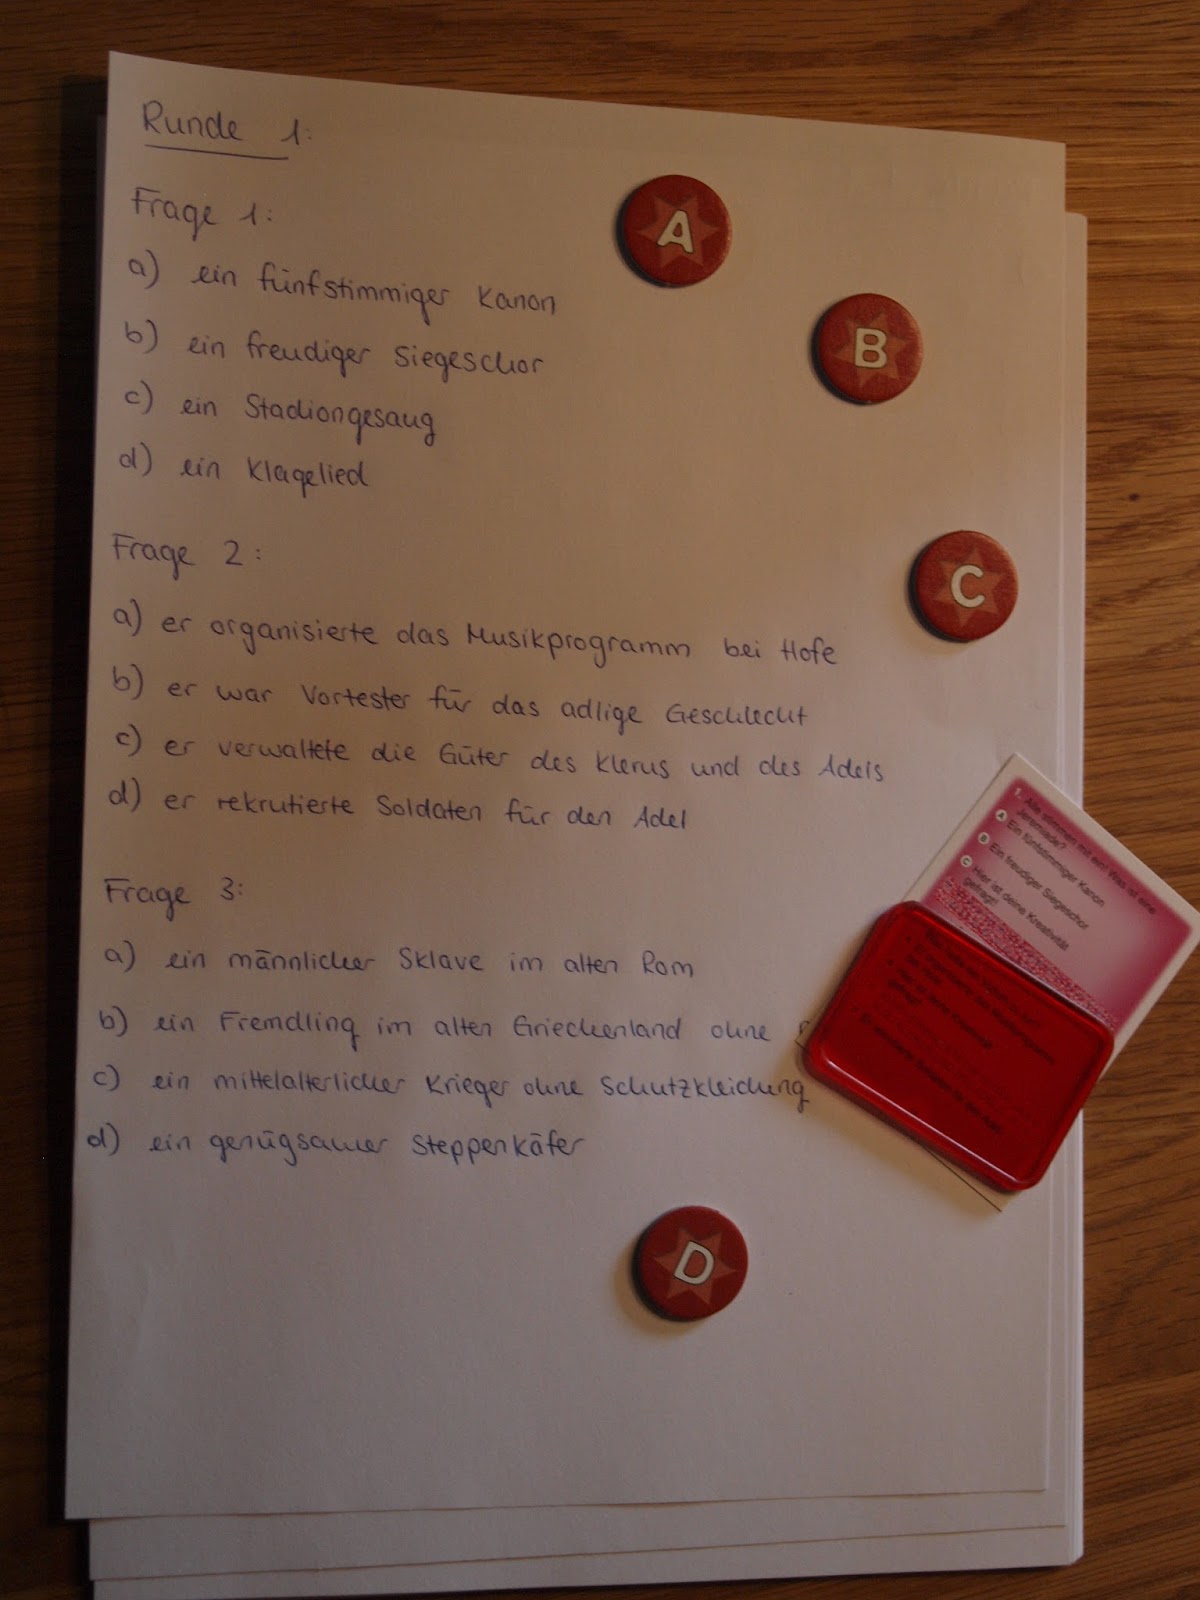 Runde 1:
Frage 1:
a) ein fünfstimmiger Kanon
b) ein freudiger Siegeschor
c) ein Stadiongesang
d) ein Klagelied
Frage 2:
a) er organisierte das Musikprogramm bei Hofe
b) er war Vortester für das adlige Geschlecht
c) er verwaltete die Güter des Klerus und des Adels
d) er rekrutierte Soldaten für den Adel
Frage 3:
a) ein männlicher Sklave im alten Rom
b) ein Fremdling im alten Griechenland ohne
c) ein mittelalterlicher Krieger ohne Schutzkleidung
d) ein genügsamer Steppenkäfer
A
B
C
D
1. Alle stimmen mit ein! Was ist eine
Jeremiade?
A Ein fünfstimmiger Kanon
B Ein freudiger Siegeschor
C Hier ist deine Kreativität
gefragt!